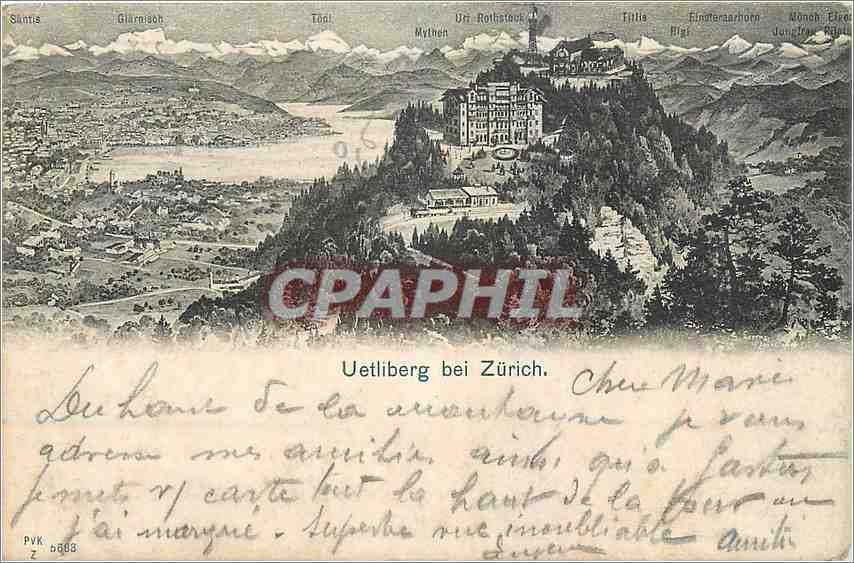 Säntis Glärnisch Tödi Mythen Uri Rothstock Titlis Rigi Finsteraarhorn Mönch Eiger Jungfrau
CPAPHIL
Uetliberg bei Zürich.
Chère Marie
Du haut de la montagne je vous
adresse mes amitiés ainsi qu'à Gaston
je mets v/ carte tout la haut de la tour ou
j'ai marqué. Superbe vue inoubliable
amitié
PVK
Z 5663